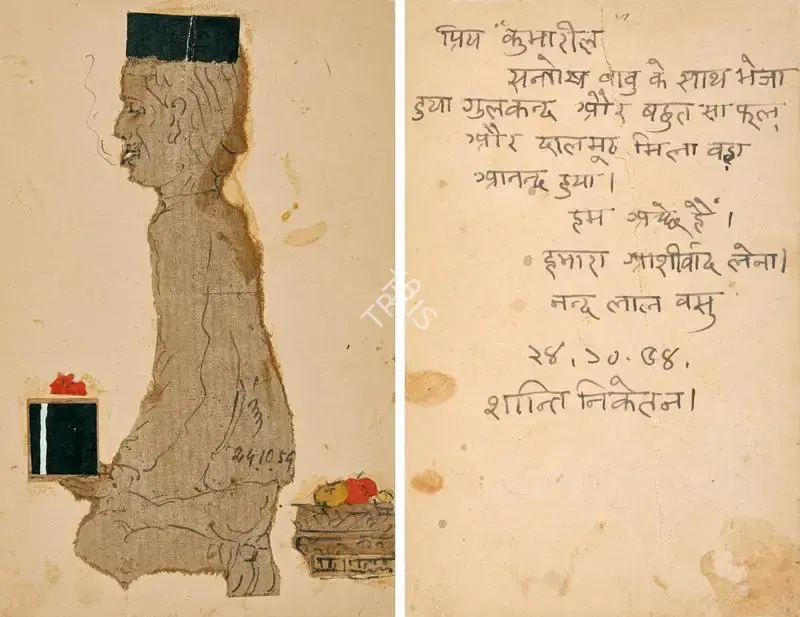 24.10.54
प्रिय "कुमारील"
सन्तोष वावु के साथ भेजा
हुया गुलकन्द और बहुत सा फूल
और दालमूठ मिला बड़ा
आनन्द हुया।
हम अच्छे हैं।
हमारा आशीर्वाद लेना।
नन्द लाल वसु
२४.१०.५४.
शान्ति निकेतन।